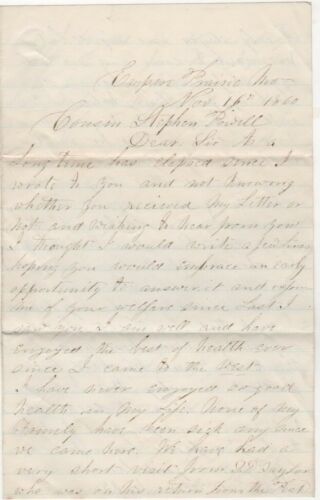 Prairie Mo
Nov 16th 1860
Cousin Stephen Powell
Dear Sir As a
Long time has elapsed since I
wrote to You and not knowing
whether You received My Letter or
Not and wishing to hear from You
I thought I would write a few lines
hoping you would embrace an early
opportunity to answer it and inform
me of your welfare since Last I
saw you I am well and have
enjoyed the best of health ever
since I came to the West
I have never enjoyed so good
health in My Life. None of My
Family have been sick any since
we came here. We have had a
very short visit from Taylor
who was on his return from the